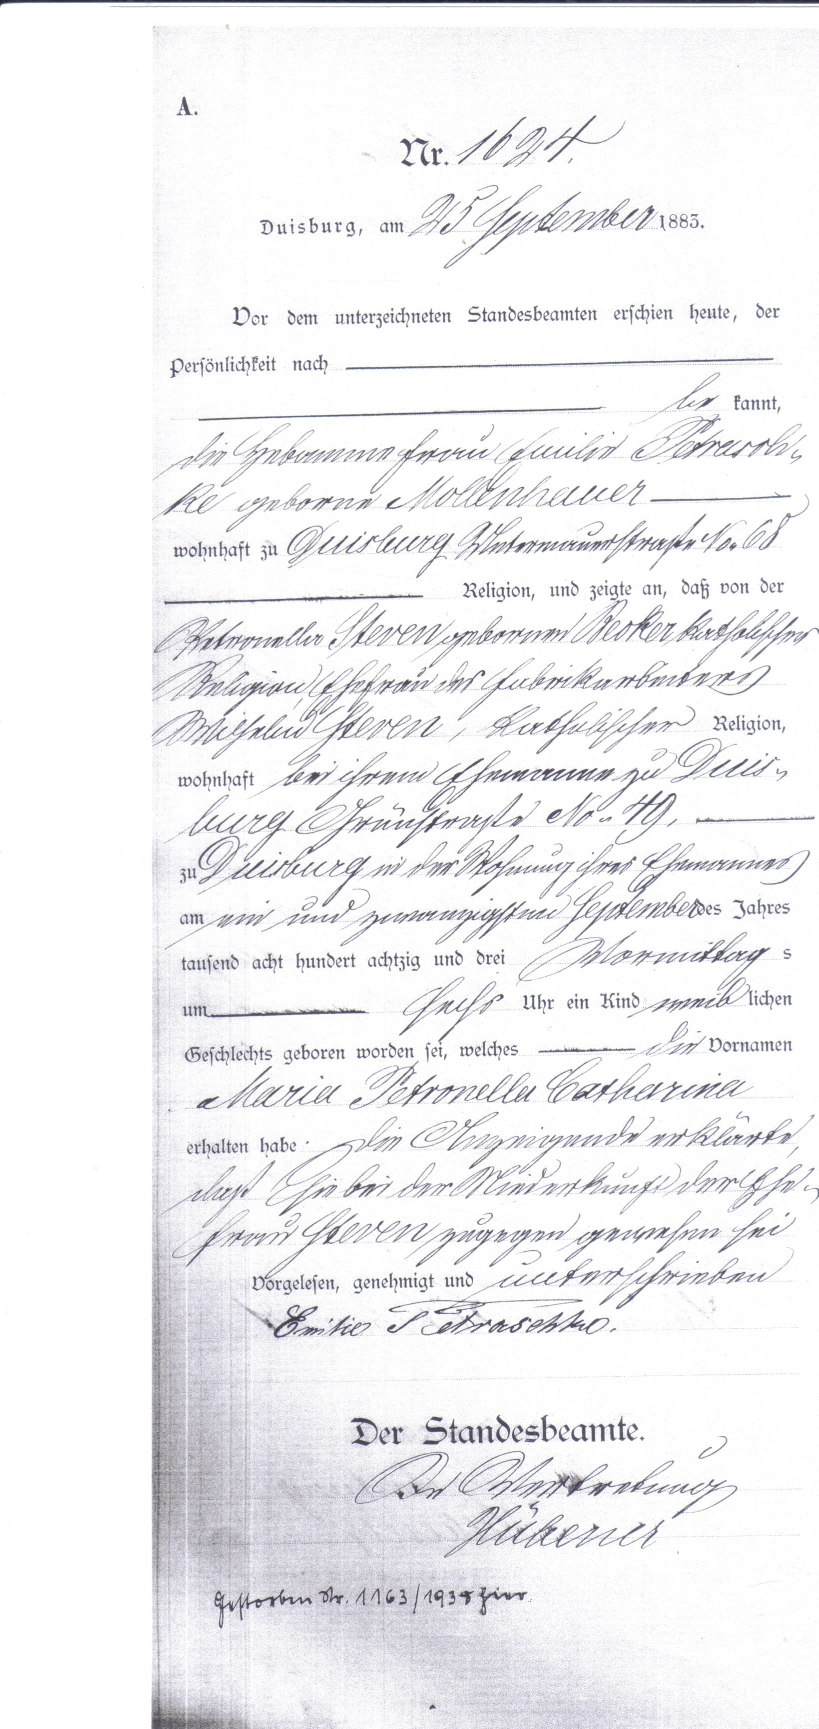 A.
Nr. 1624.
Duisburg, am 25 September 1883.
Vor dem unterzeichneten Standesbeamten erschien heute, der
Persönlichkeit nach
be kannt,
die Hebamme Frau Emilie Petrasch-
ke geborne Mollenhauer
wohnhaft zu Duisburg Untermauerstraße No. 68
Religion, und zeigte an, daß von der
Petronella Steven gebornen Becker katholischer
Religion, Ehefrau des Fabrikarbeiters
Wilhelm Steven, katholischer Religion,
wohnhaft bei ihrem Ehemanne zu Duis-
burg Grünstraße No. 49.
zu Duisburg in der Wohnung ihres Ehemannes
am ein und zwanzigsten September des Jahres
tausend acht hundert achtzig und drei Vormittag s
um sechs Uhr ein Kind weib lichen
Geschlechts geboren worden sei, welches die Vornamen
Maria Petronella Catharina
erhalten habe. Die Anzeigende erklärte,
daß sie bei der Niederkunft der Ehe-
frau Steven zugegen gewesen sei
Vorgelesen, genehmigt und unterschrieben
Emilie Petraschke.
Der Standesbeamte.
In Vertretung
Hübener
Gestorben Nr. 1163/1938 hier.